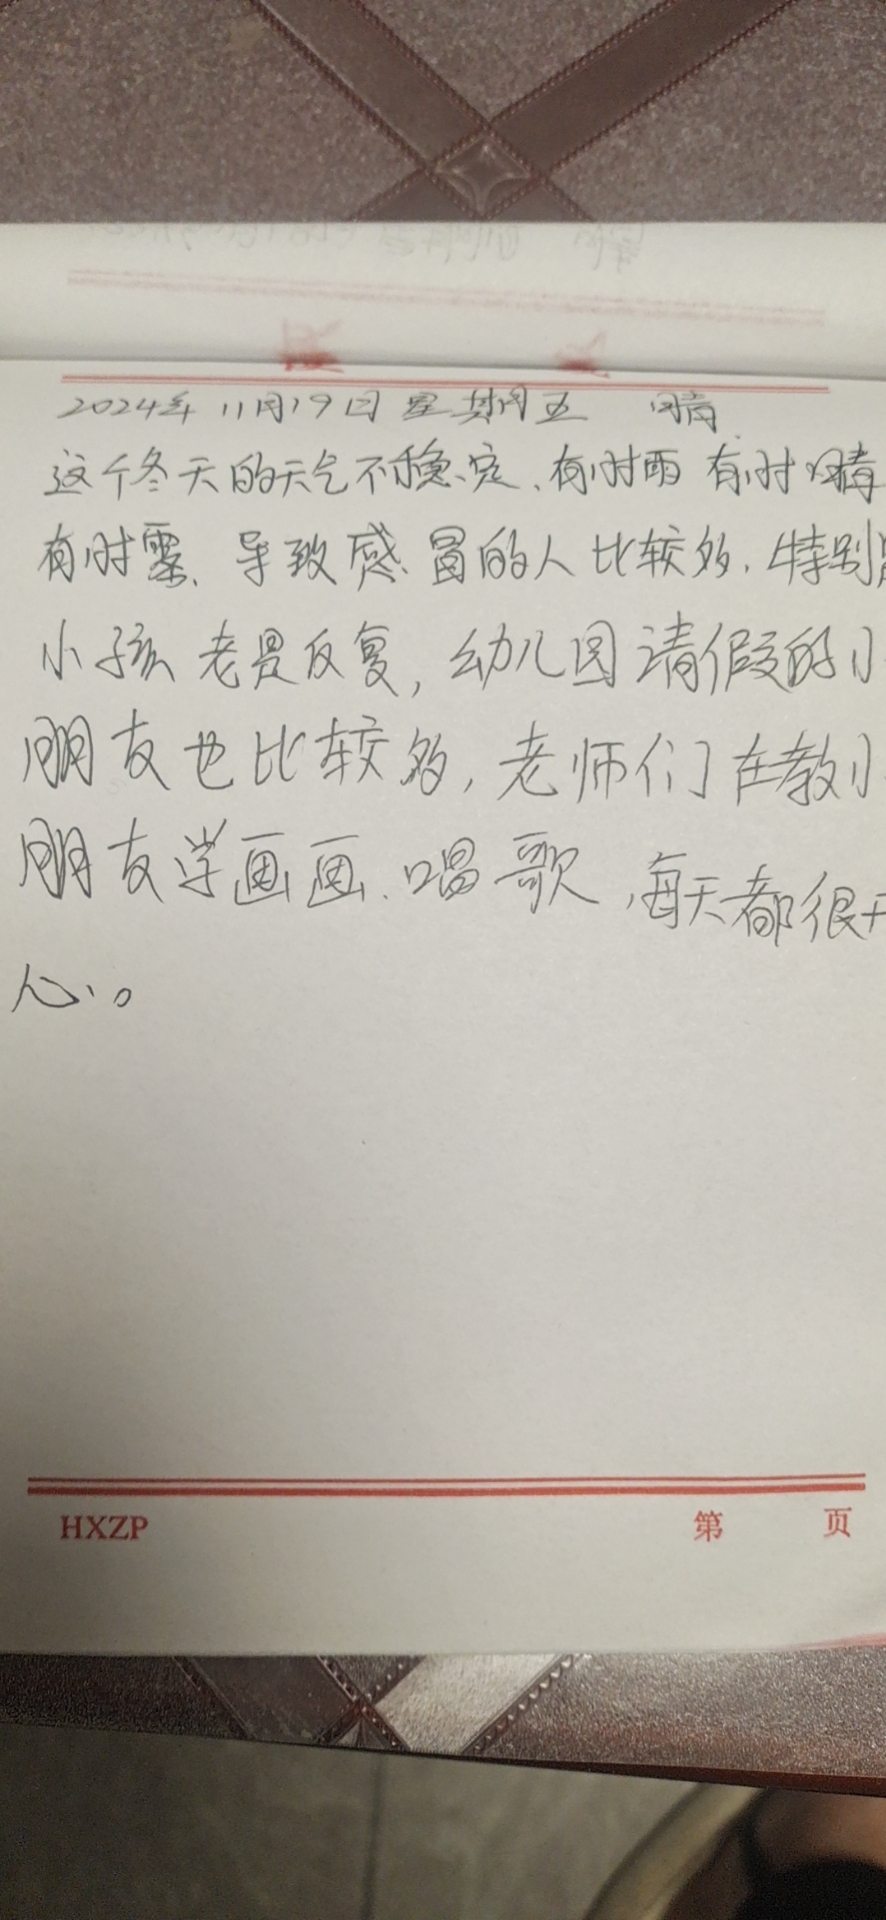 2024年11月19日 星期五 晴
这个冬天的天气不稳定、有时雨 有时晴
有时雾、导致感冒的人比较多.特别是
小孩老是反复,幼儿园请假的小
朋友也比较多,老师们在教小
朋友学画画、唱歌,每天都很开
心。
HXZP 第 页